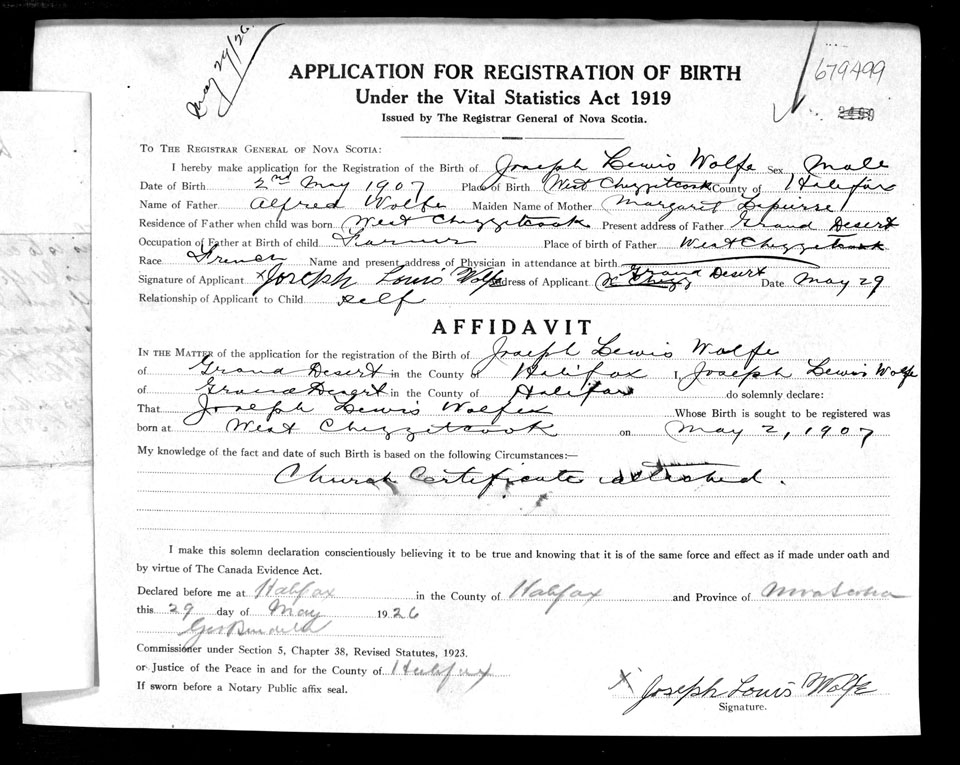 May 29/26
679499
APPLICATION FOR REGISTRATION OF BIRTH
Under the Vital Statistics Act 1919
Issued by The Registrar General of Nova Scotia.
To The Registrar General of Nova Scotia:
I hereby make application for the Registration of the Birth of Joseph Lewis Wolfe Sex Male
Date of Birth 2nd May 1907 Place of Birth West Chezzetcook County of Halifax
Name of Father Alfred Wolfe Maiden Name of Mother Margaret Lapierre
Residence of Father when child was born West Chezzetcook Present address of Father Grand Desert
Occupation of Father at Birth of child Farmer Place of birth of Father West Chezzetcook
Race French Name and present address of Physician in attendance at birth
Signature of Applicant x Joseph Louis Wolfe Address of Applicant Grand Desert Date May 29
Relationship of Applicant to Child self
AFFIDAVIT
In the Matter of the application for the registration of the Birth of Joseph Lewis Wolfe
of Grand Desert in the County of Halifax I, Joseph Lewis Wolfe
of Grand Desert in the County of Halifax do solemnly declare:
That Joseph Lewis Wolfe Whose Birth is sought to be registered was
born at West Chezzetcook on May 2, 1907
My knowledge of the fact and date of such Birth is based on the following Circumstances:—
Church Certificate attached.
I make this solemn declaration conscientiously believing it to be true and knowing that it is of the same force and effect as if made under oath and
by virtue of The Canada Evidence Act.
Declared before me at Halifax in the County of Halifax and Province of Nova Scotia
this 29 day of May 1926
Commissioner under Section 5, Chapter 38, Revised Statutes, 1923.
or Justice of the Peace in and for the County of Halifax
If sworn before a Notary Public affix seal.
x Joseph Louis Wolfe
Signature.